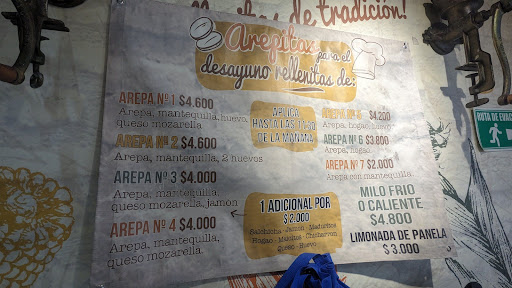 de tradición!
Arepitas
para el
desayuno rellenitas
de:
AREPA Nº 1 $4.600
Arepa, mantequilla, huevo,
queso mozarella
AREPA Nº 2 $4.600
Arepa, mantequilla, 2 huevos
AREPA Nº 3 $4.000
Arepa, mantequilla,
queso mozarella, jamon
AREPA Nº 4 $4.000
Arepa, mantequilla,
queso mozarella
APLICA
HASTA LAS
DE LA MAÑANA
1 ADICIONAL POR
$ 2.000
Salchicha - Jamon - Maduritos
Hogao - Maicitos - Chicharron
Queso - Huevo
AREPA Nº 5 $4.200
Arepa, hogao, huevo
AREPA Nº 6 $3.800
Arepa, hogao
AREPA Nº 7 $2.000
Arepa con mantequilla
MILO FRIO
O CALIENTE
$4.800
LIMONADA DE PANELA
$ 3.000
RUTA DE EVAC